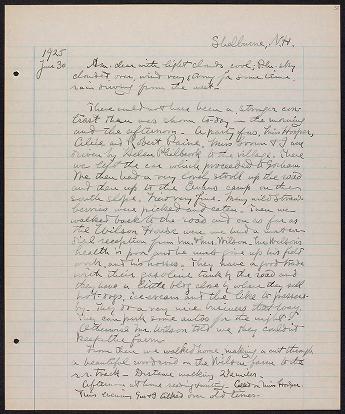 Shelburne, N.H.
1925
June 30
A.M. clear with light clouds, cool; P.M. sky
clouded over, wind very strong for some time,
rain driving from the west.
There could not have been a stronger con-
trast than was shown to-day in the morning
and the afternoon. A party of us, Miss Hooper,
Alice and Robert Paine, Miss Brown & I were
driven by Helen Philbrook to the village. There
we left the car which proceeded to Gorham.
We then had a very lovely stroll up the road
and then up to the camp on the
south slope. View very fine. Many wild straw-
berries were picked and eaten. Then we
walked back to the road and on as far as
the Wilson House where we had a most cor-
dial reception from Mr. & Mrs. Wilson. Mr. Wilson's
health is poor and he must give up his field
work and his horses. They have a good trade
with their gasoline tank by the road and
they have a little booth close by where they sell
hot-dogs, ice cream and the like to passers-
by. They do a very nice business that way.
They can park some autos for the night too.
Otherwise Mr. Wilson told us, they couldn't
keep the farm.
From there we walked home, making a cut through
a beautiful woodroad on the Wilson farm to the
r.r. track. Distance walking 2 1/2 miles.
Afternoon at home Miss Hooper
Miss Brown talked over old times.